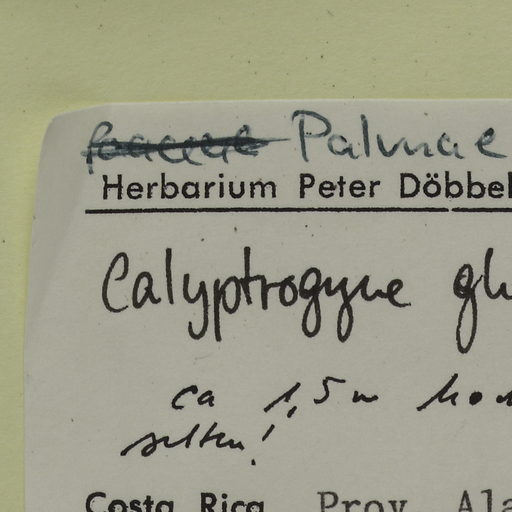 Palmae
Herbarium Peter Döbbel
Calyptrogyne gh
ca 1,5 m hoch
selten!
Costa Rica Prov. Ala